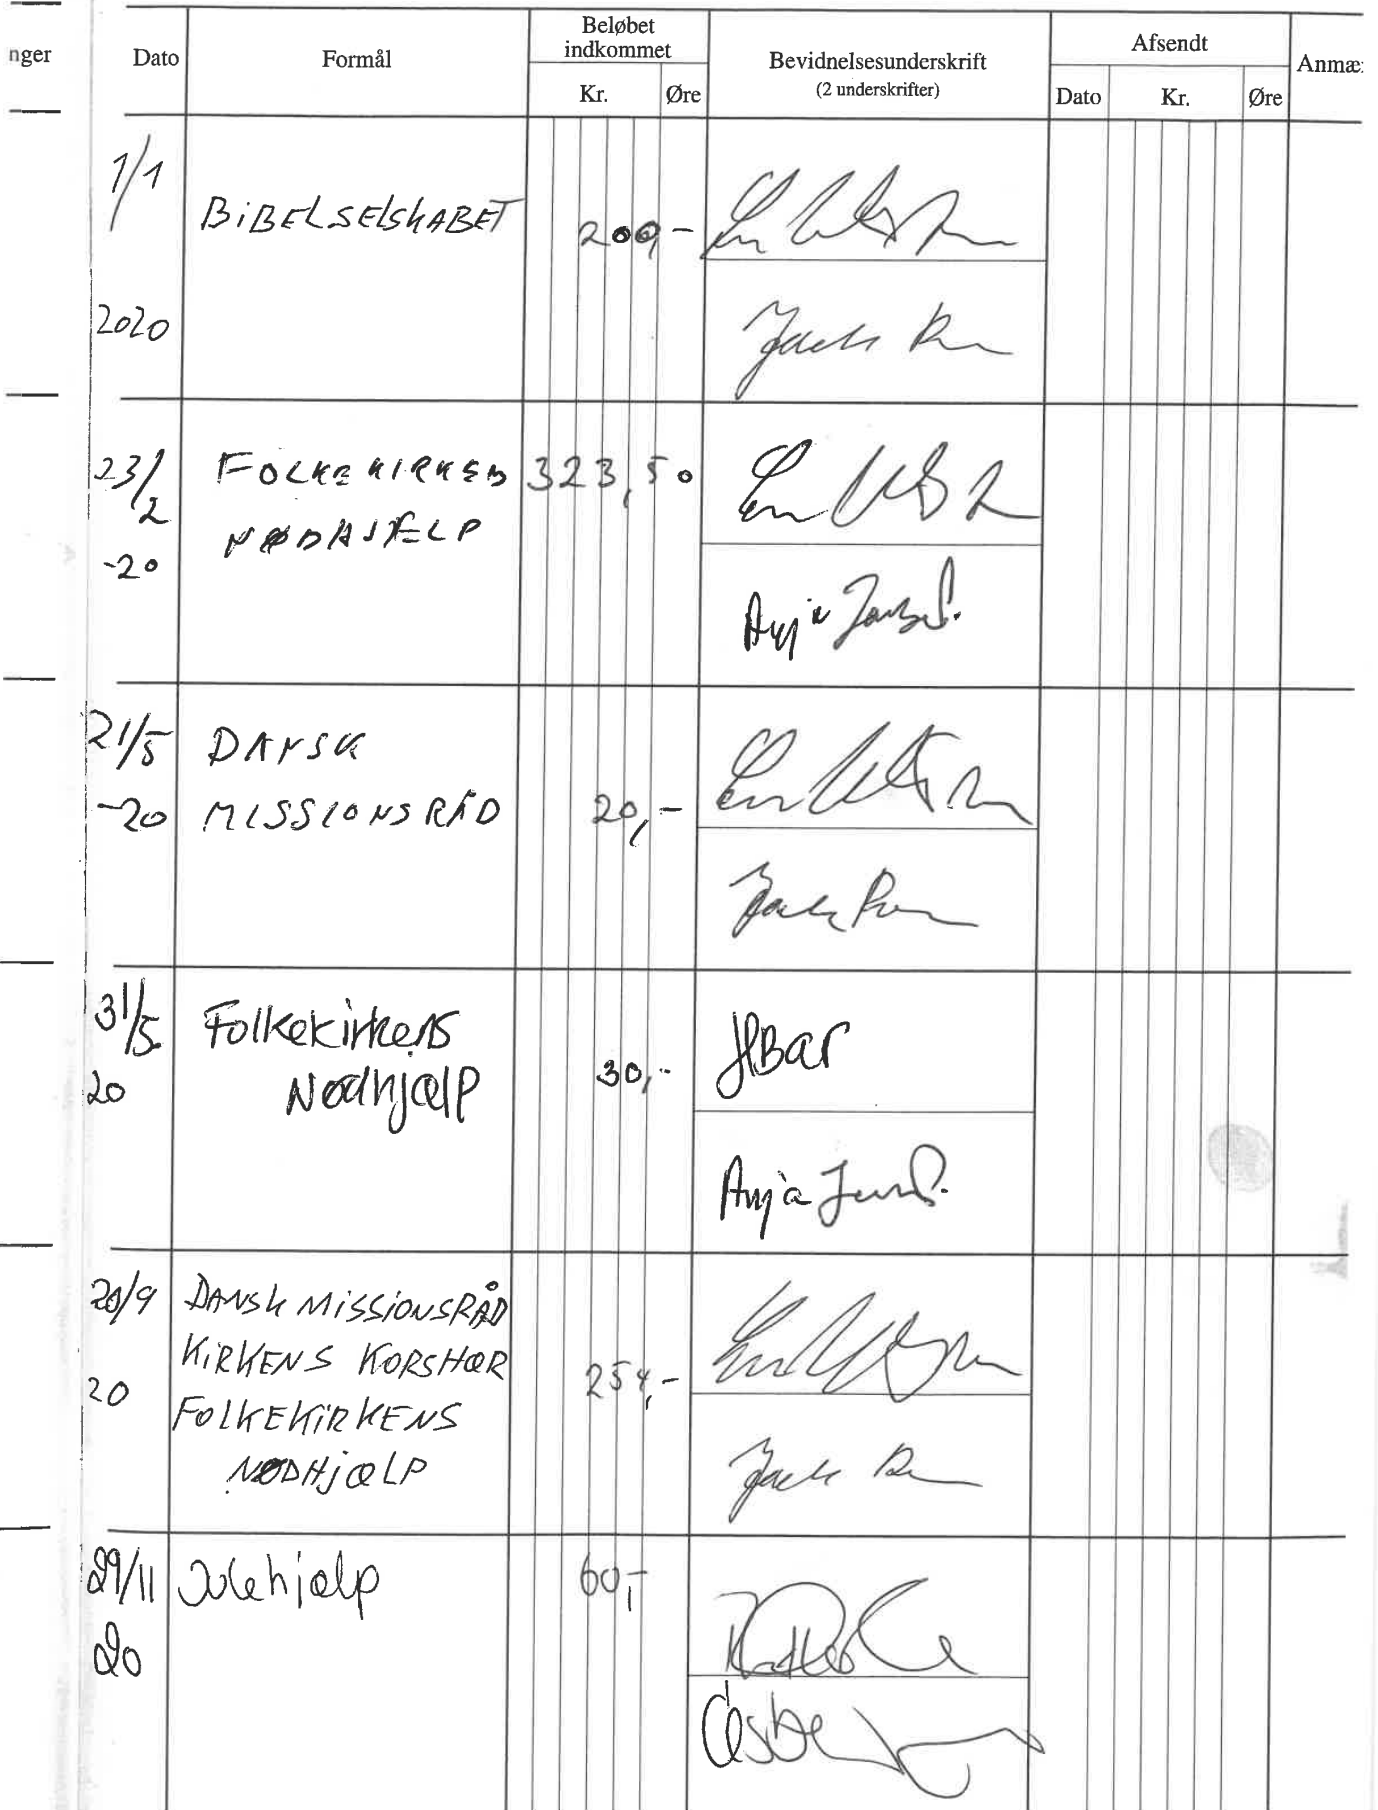 nger
Dato
Formål
Beløbet
indkommet
Kr.
Øre
Bevidnelsesunderskrift
(2 underskrifter)
Afsendt
Dato
Kr.
Øre
Anmæ
1/1
2020
BIBELSELSKABET
200,-
23/2
-20
FOLKEKIRKEN
NØDHJÆLP
323,50
Anja
21/5
-20
DANSK
MISSIONSRÅD
20,-
31/5
20
Folkekirkens
Nødhjælp
30,-
HBar
Anja
20/9
20
DANSK MISSIONSRÅD
KIRKENS KORSHÆR
FOLKEKIRKENS
NØDHJÆLP
254,-
29/11
20
Julehjælp
60,-